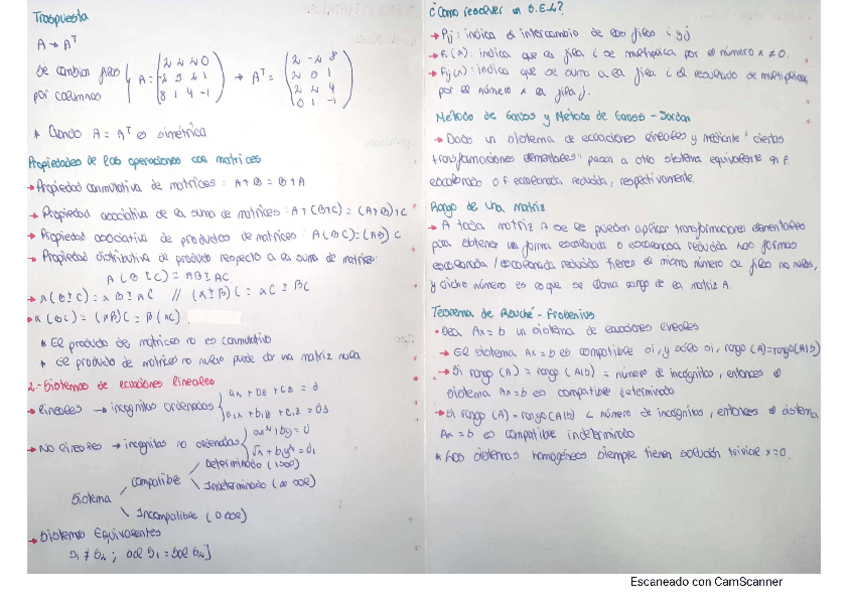 Traspuesta
A → Aᵀ
Se cambian filas
por columnas
A = (2 4 20
-2 5 2 1
8 1 4 -1) → Aᵀ = (2 -2 8
2 0 1
2 2 4
0 1 -1)
* Cuando A = Aᵀ es simétrica
Propiedades de las operaciones con matrices
→ Propiedad conmutativa de matrices : A+B = B+A
→ Propiedad asociativa de la suma de matrices: A+(B+C) = (A+B)+C
→ Propiedad asociativa de productos de matrices: A(BC) = (AB)C
→ Propiedad distributiva de producto respecto a la suma de matrices:
A(B±C) = AB±AC
* El producto de matrices no es conmutativo
* El producto de matrices no nulas puede dar una matriz nula
2.- Sistemas de ecuaciones lineales
→ Lineales → incógnitas ordenadas
→ No lineales → incógnitas no ordenadas
Sistema
Compatible
Determinado (1 sol)
Indeterminado (∞ sol)
Incompatible (0 sol)
→ Sistemas Equivalentes
¿Como resolver un S.E.L?
→ Fij : indica el intercambio de las filas i y j
→ Fi(λ) : indica que la fila i se multiplica por el número λ ≠ 0.
→ Fij(λ) : indica que se suma a la fila i el resultado de multiplicar
por el número λ la fila j.
Método de Gauss y Método de Gauss - Jordan
→ Dado un sistema de ecuaciones lineales y mediante "ciertas
transformaciones elementales" pasan a otro sistema equivalente en f.
escalonada o f escalonada reducida, respectivamente.
Rango de una matriz
→ A toda matriz A se le pueden aplicar transformaciones elementales
para obtener un forma escalonada o escalonada reducida. Las formas
escalonada / escalonada reducida tienen el mismo número de filas no nulas,
y dicho número es lo que se llama rango de la matriz A.
Teorema de Rouché - Frobenius
• Sea Ax = b un sistema de ecuaciones lineales
→ El sistema Ax = b es compatible si, y sólo si, rango (A) = rango (A|b)
→ Si rango (A) = rango (A|b) = número de incógnitas, entonces el
sistema Ax = b es compatible determinado
→ Si rango (A) = rango (A|b) < número de incógnitas, entonces el sistema
Ax = b es compatible indeterminado
* Los sistemas homogéneos siempre tienen solución trivial x = 0.
Escaneado con CamScanner